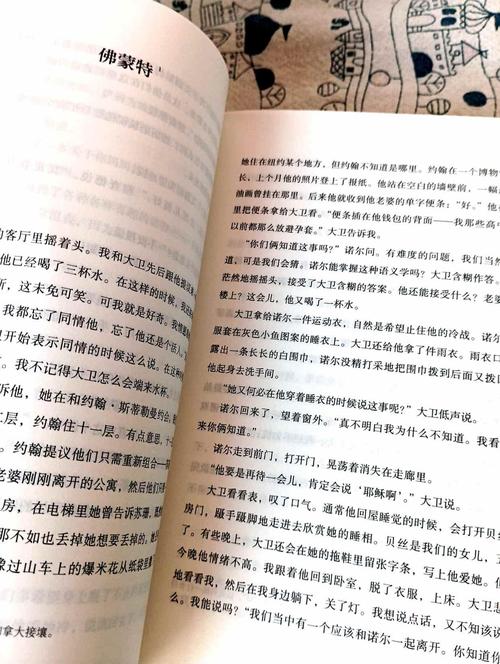 佛蒙特
的客厅里摇着头。我和大卫先后跟他
他已经喝了三杯水。在这样的时候，我
所，这未免可笑。可我就是好奇。我
我都忘了同情他，忘了他还是个活人。
开始表示同情的时候这么说。在这
。我不记得大卫怎么会端来水杯。
诉他，她在和约翰·斯蒂勒曼约会。
二层，约翰住十一层。有点意思，十一
。约翰提议他们只需重新组合——
老婆刚刚离开的公寓，然后他们
房，在电梯里她曾告诉苏珊，
那不如也丢掉她想要丢掉的，
像过山车上的爆米花从纸袋里
加拿大接壤。
她住在纽约某个地方，但约翰不知道是哪里。约翰在一个博物
长，上个月他的照片登上了报纸。他站在空白的墙壁前，一幅
油画曾挂在那里。后来他就收到他老婆的单字便条：“好。”他
里把便条拿给大卫看。“便条插在他钱包的背面——我那些高中
以前都那么放避孕套。”大卫告诉我。
“你们俩知道这事吗？”诺尔问。有难度的问题，我们当然
道，可是我们会猜。诺尔能掌握这种语义学吗？大卫含糊作答。
茫然地摇摇头，接受了大卫含糊的答案。他还能接受什么？老
楼上？这会儿，他又喝了一杯水。
大卫拿给诺尔一件运动衣，自然是希望止住他的冷战。诺尔
服套在灰色小鱼图案的睡衣上。大卫还给他拿了件雨衣。雨衣口
露出一条长长的白围巾，诺尔没精打采地把围巾拨到后面又拨
他起身去洗手间。
“她又何必在他穿着睡衣的时候说这事呢？”大卫低声说。
诺尔回来了，望着窗外。“真不明白我为什么不知道。我看
来你俩知道。”
诺尔走到前门，打开门，晃荡着消失在走廊里。
“他要是再待一会儿，肯定会说‘耶稣啊’。”大卫说。
大卫看看表，叹了口气。通常他回屋睡觉的时候，会打开贝
房门，蹑手蹑脚地走进去欣赏她的睡相。贝丝是我们的女儿，五
了。有些晚上，大卫还会在她的拖鞋里留张字条，写上他爱她。
今晚他情绪不高。我跟着他回到卧室，脱了衣服，上床。大卫悲
地看看我，然后在我身边躺下，关了灯。我想说点话，又不知该说
么。我能说吗？“我们当中有一个应该和诺尔一起离开。你知道